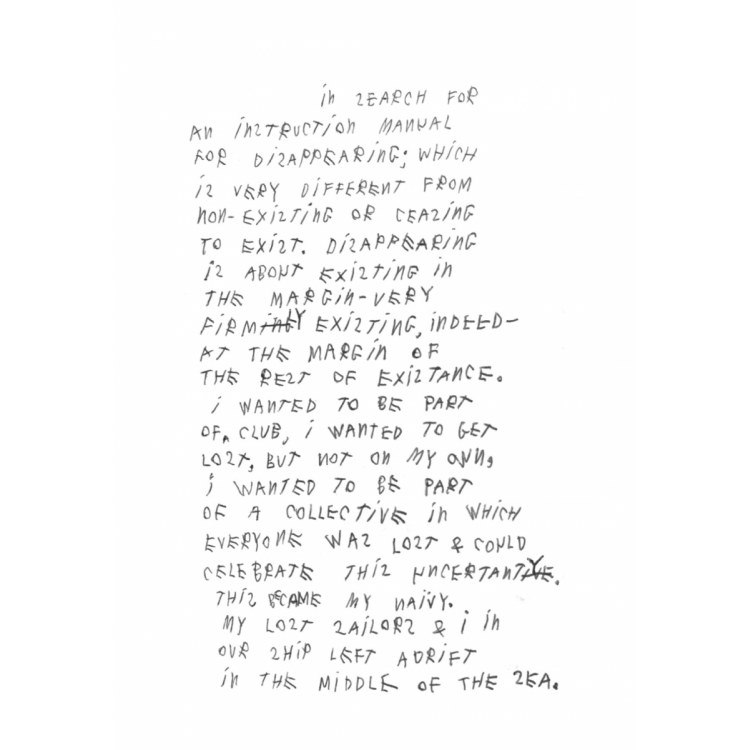 iN SEARCH FOR
AN iNSTRUCTiON MANUAL
FOR DiSAPPEARiNG; WHiCH
iS VERY DiFFERENT FROM
NON-EXiSTiNG OR CEASiNG
TO EXiST. DiSAPPEARiNG
iS ABOUT EXiSTiNG iN
THE MARGiN-VERY
FiRMLY EXiSTiNG, iNDEED-
AT THE MARGiN OF
THE REST OF EXiSTANCE.
i WANTED TO BE PART
OF, CLUB, i WANTED TO GET
LOST, BUT NOT ON MY OWN,
i WANTED TO BE PART
OF A COLLECTiVE iN WHiCH
EVERYONE WAS LOST & COULD
CELEBRATE THiS UNCERTANTY.
THiS BECAME MY NAiVY.
MY LOST SAiLORS & i iN
OUR SHiP LEFT ADRiFT
iN THE MiDDLE OF THE SEA.